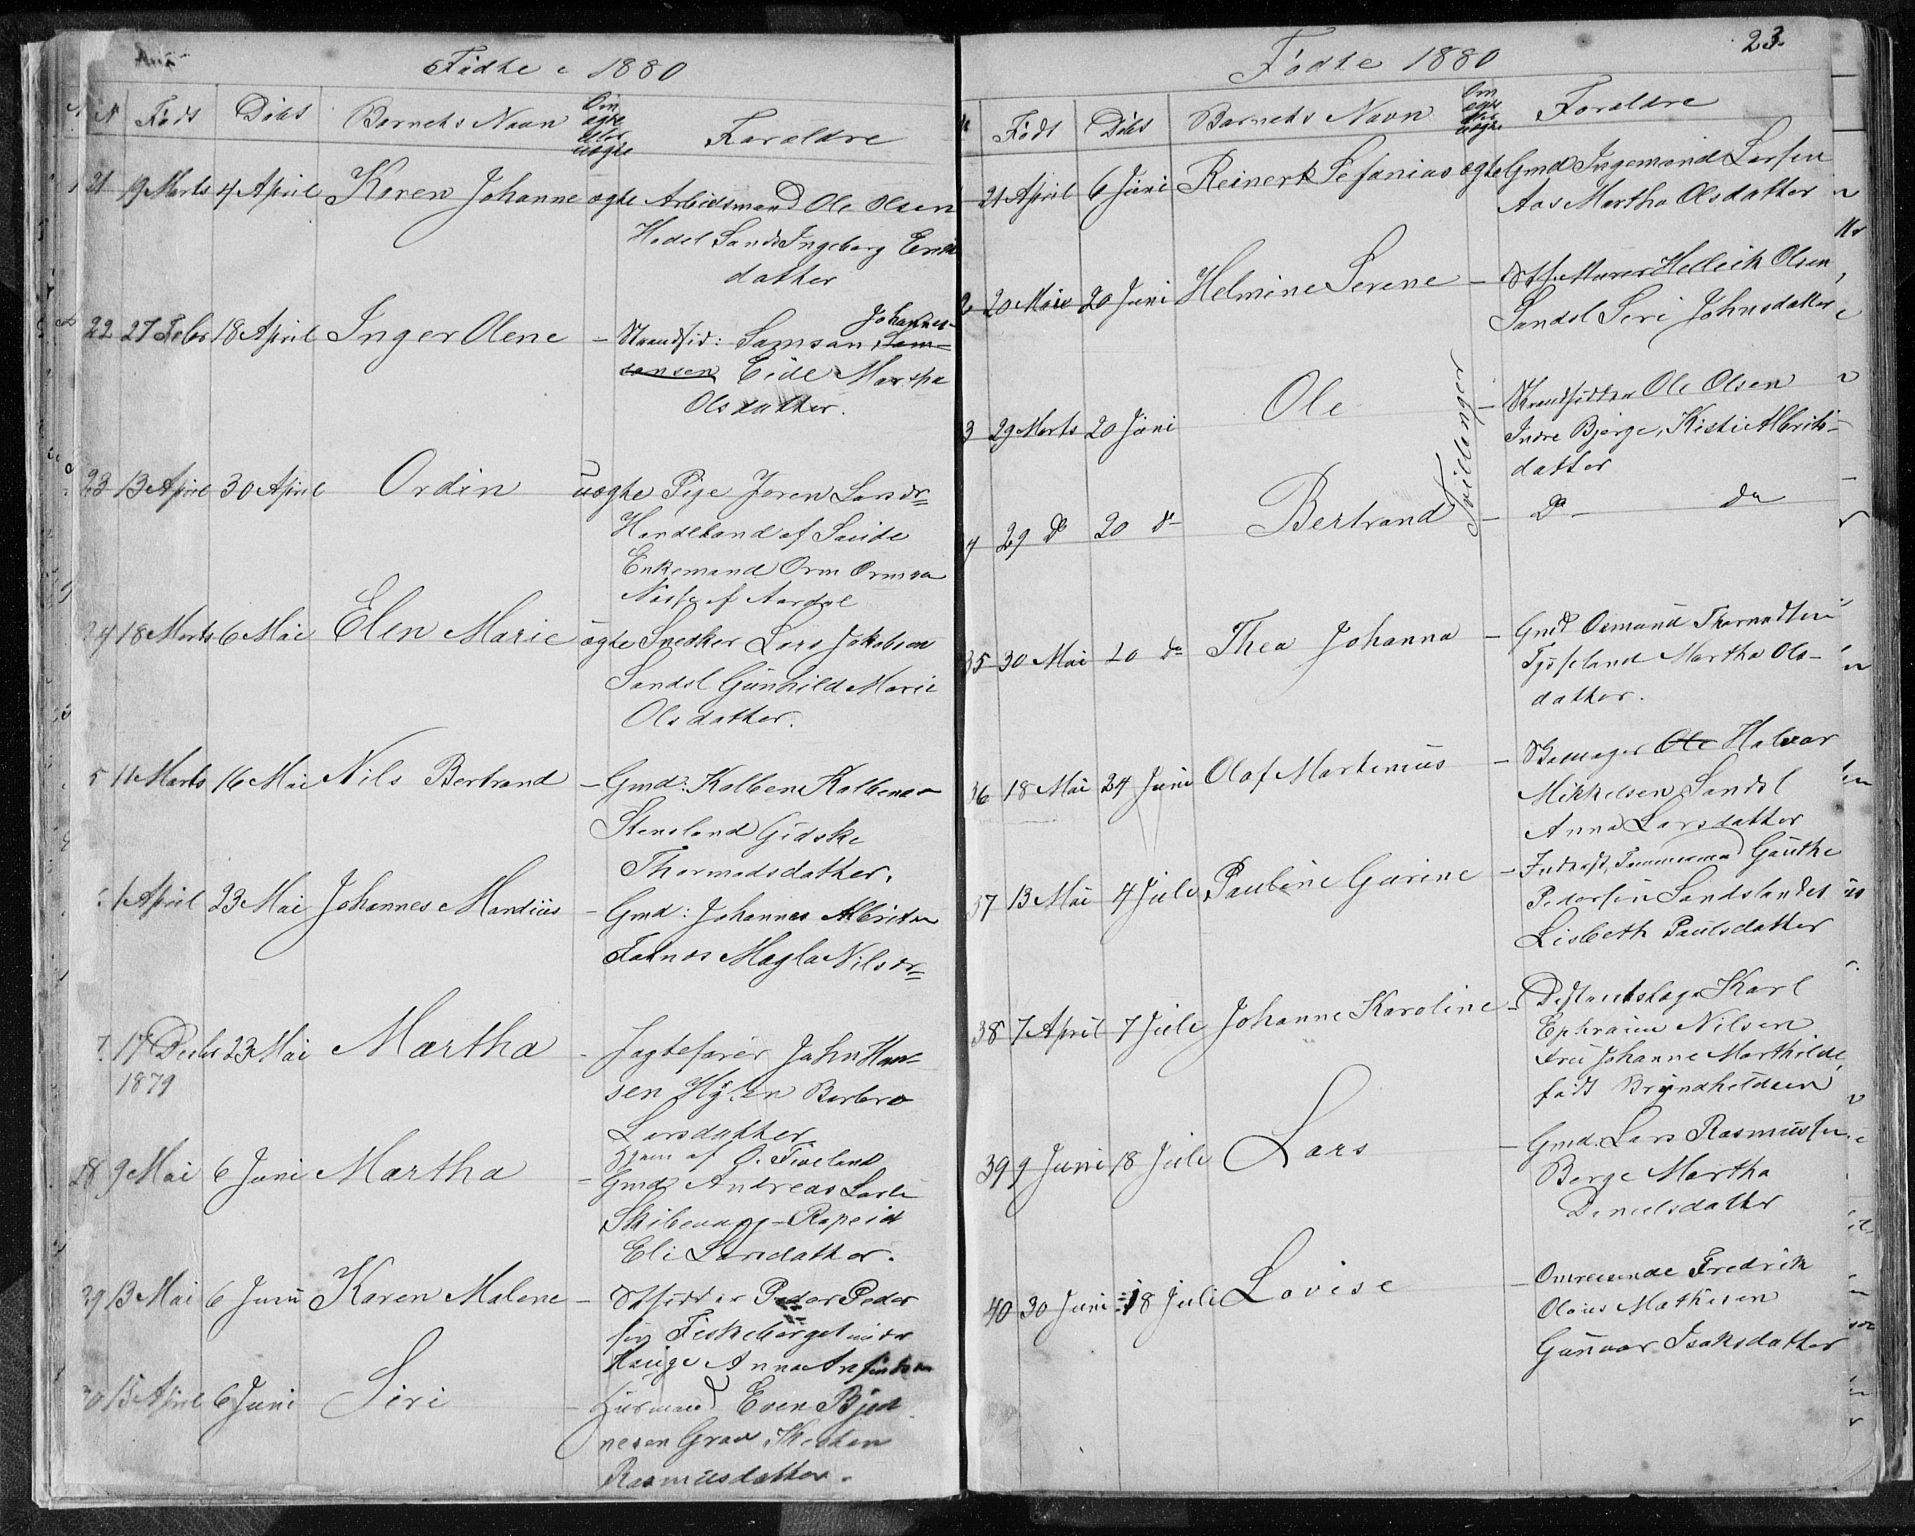 Fødte 1880
N Født Døbt Barnets Navn Om ægte eller uægte Forældre
21 19 Marts 4 April Karen Johanne ægte Arbeidsmand Ole Olsen
Sand Ingeborg
datter
22 27 Febr 18 April Inger Olene - Strandsid: Samson Johannes-
sansen Eide Martha
Olsdatter.
23 13 April 30 April Ordin uægte Pige Joren Larsdr=
Handeland af Saude
Enkemand Orm Ormsen
af Aardal
24 18 Marts 6 Mai Elen Marie ægte Snedker Lars Jakobsen
Sandsl Gunhild Marie
Olsdatter.
5 11 Marts 16 Mai Nils Bertrand - Gmd: Kolben Kolbensen
Stensland Gidske
Thormodsdatter.
1 April 23 Mai Johannes Mandius - Gmd: Johannes Albritsen
Magla Nilsdr=
7 17 Decbr 23 Mai Martha - Jagtefører John Han-
1879
sen Barbro
Larsdatter
Hjem af
28 9 Mai 6 Juni Martha - Gmd Andreas
Skibevaag - Ropeid
Eli Larsdatter.
29 13 Mai 6 Juni Karen Malene - Peder Peder
sen
Hauge Anna
30 15 April 6 Juni Siri - Husmand Even Bjør
nesen
Rasmusdatter.
Fødte 1880 23.
Født Døbt Barnets Navn Om ægte eller uægte Forældre
21 April 6 Juni Reinert Sefanias ægte Gmd Ingemand Larsen
Aas Martha Olsdatter
20 Mai 20 Juni Helmine Serene - Murer Helleik Olsen
Sandsl Seri Johnsdatter
3 29 Marts 20 Juni Ole Tvillinger - Strandsidder Ole Olsen
Indre Bjørge, Kisti Albrits-
datter
4 29 do 20 do Bertrand - Do - do
35 30 Mai 20 do Thea Johanna - Gmd Osmund Thormodsen
Tjøseland Martha Ols-
datter.
36 18 Mai 24 Juni Olaf Martinius - Skomager Ole Halvar
Mikkelsen Sandsl
Anna Larsdatter
37 13 Mai 4 Juli Pauline Gurine - Inderst, Tømmermand Gauthe
Pedersen Sandslandet
Lisbeth Paulsdatter
38 7 April 7 Juli Johanne Karoline - Distriktslæge Karl
Ephraim Nilsen
Fru Johanne Marthilde
født
39 9 Juni 18 Juli Lars - Gmd. Lars Rasmussen
Berge Martha
Danielsdatter
40 30 Juni 18 Juli Lovise - Omreisende Fredrik
Olaus Mathisen
Gunvor Isaksdatter